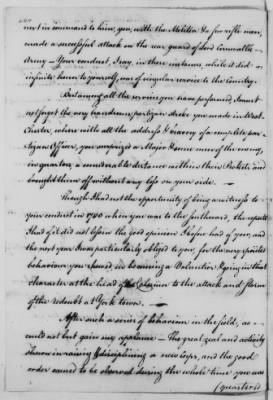 next in command to him, you, with the Militia & a few rifle men,
made a successful attack on the rear guard of Lord Cornwallis's
Army — Your conduct, I say, in these instances, while it did
infinite honor to yourself, was of singular service to the Country.
But among all the services you have performed, I must
not forget the very handsome partizan stroke you made in West-
Chester, where with all the address & bravery of a complete par-
tizan Officer, you surprized a Major & some men of the enemy,
in quarters, a considerable distance within their Pickets, and
brought them off without any loss on your side. —
Though I had not the opportunity of being a witness to
your conduct in 1780 when you was to the southward, the reports
I had of it did not lessen the good opinion I before had of you, and
the next year I was particularly obliged to you, for the very spirited
behaviour you shewed in becoming a Volunteer, & going in that
character at the head of the column to the attack and storm
of the redoubt at York town. —
After such a series of behaviour in the field, as
could not but gain my applause — The great zeal and activity
shewn in raising & disciplining a new corps, and the good
order seemed to be observed during the whole time you was
(quartered